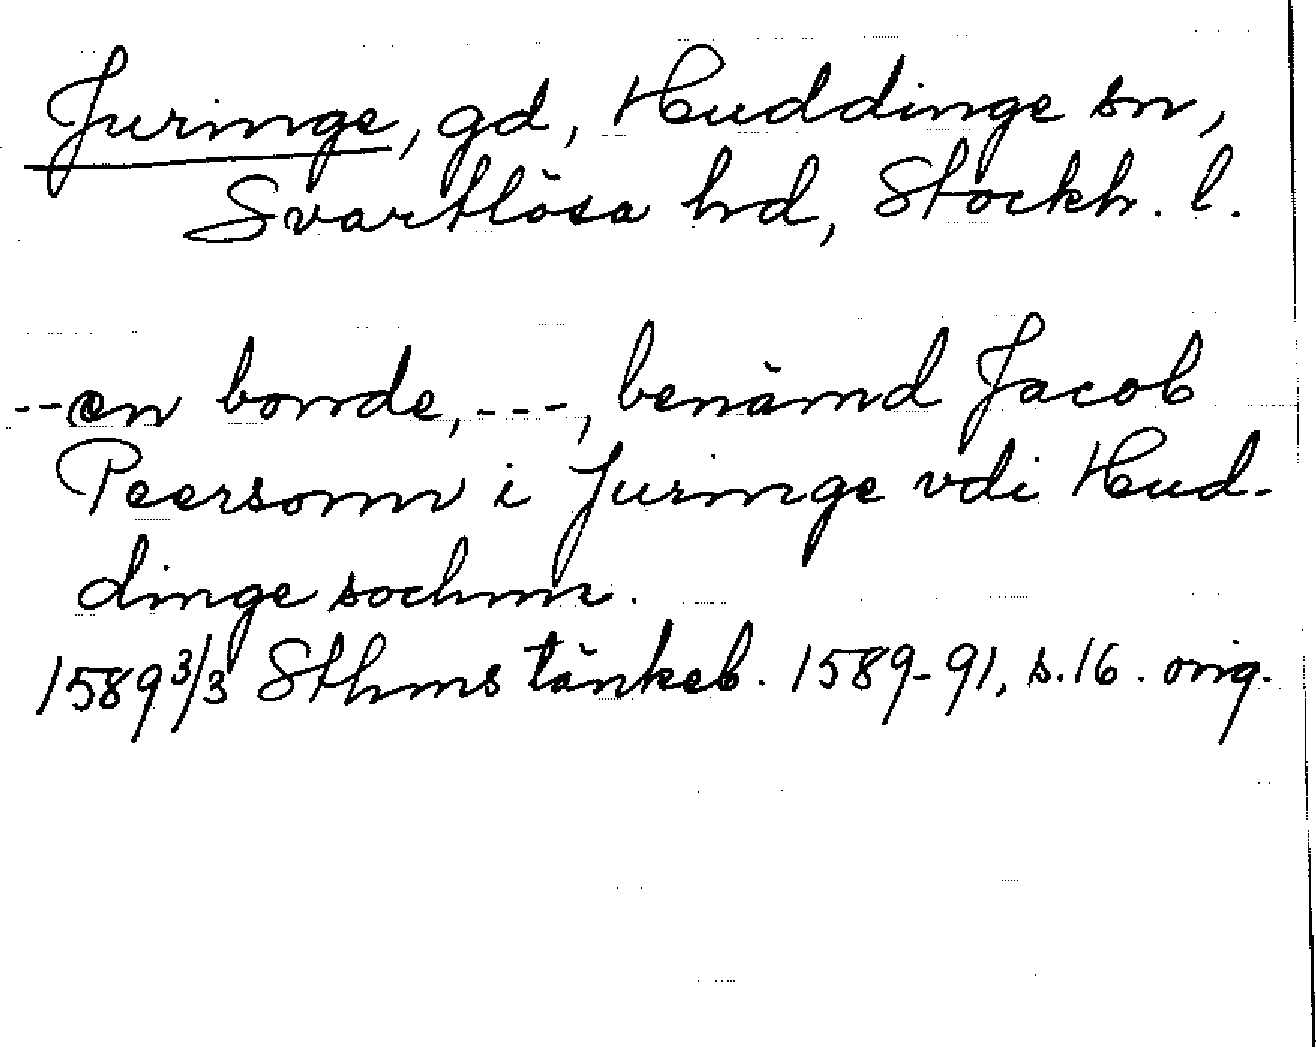 Juringe, gd, Huddinge sn,
Svartlösa hd, Stockh. l.
--en bonde, ---, benämd Jacob
Peersonn i Juringe vdi Hud-
dinge sochnn.
1589 3/3 Sthms tänkeb. 1589-91, s. 16. orig.